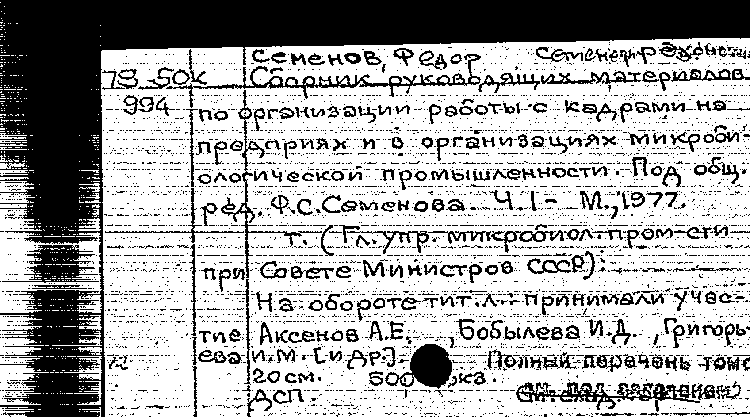 Семенов, Федор
78-50к Сборник руководящих материалов
994 по организации работы с кадрами на
предприях и в организациях микроби-
ологической промышленности. Под общ.
ред. Ф.С.Семенова. Ч.1- М.,1977.
т. (Гл.упр. микробиол.пром-сти
при Совете Министров СССР):
На обороте тит.л.: принимали учас-
тие Аксенов А.Е. ,Бобылева И.Д. ,Григорь-
ева И.М. [и др]. Полный перечень томо
20см. 500 кз.
ДСП. см. под заглавием)